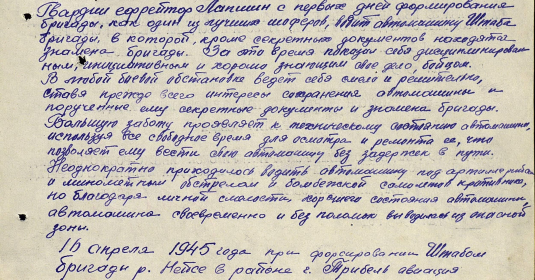 Гвардии ефрейтор Лапшин с первых дней формирования
бригады, как один из лучших шоферов, водит автомашину Штаба
бригады, в которой, кроме секретных документов находятся
знамена бригады. За это время показал себя дисциплинирован-
ным, инициативным и хорошо знающим свое дело, бойцом.
В любой боевой обстановке ведет себя смело и решительно,
ставя прежде всего интересы сохранения автомашины и
порученные ему секретные документы и знамена бригады.
Большую заботу проявляет к техническому состоянию автомашины,
используя все свободное время для осмотра и ремонта ее, что
позволяет ему вести свою автомашину без задержек в пути.
Неоднократно приходилось водить автомашину под артиллерийск
и минометным обстрелом и бомбежкой самолетов противника,
но благодаря личной смелости, хорошего состояния автомашины,
автомашина своевременно и без поломок выводилась из опасной
зоны.
16 апреля 1945 года при форсировании Штабом
бригады р. Нейсе в районе г. Трибель авиация